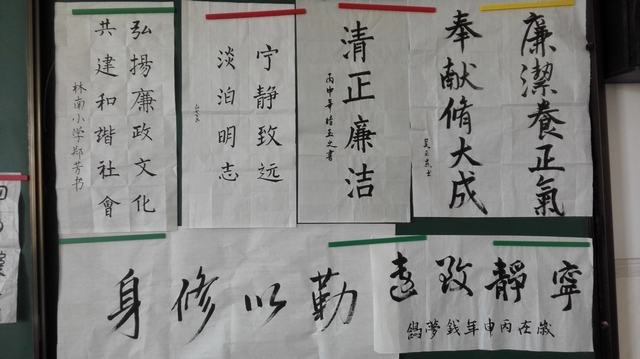 廉潔養正氣
奉献脩大成
清正廉洁
丙申年
宁静致远
淡泊明志
弘揚廉政文化
共建和諧社會
林南小学郑芳书
寧靜致遠
歲在丙申年錢夢鴿
勤以修身